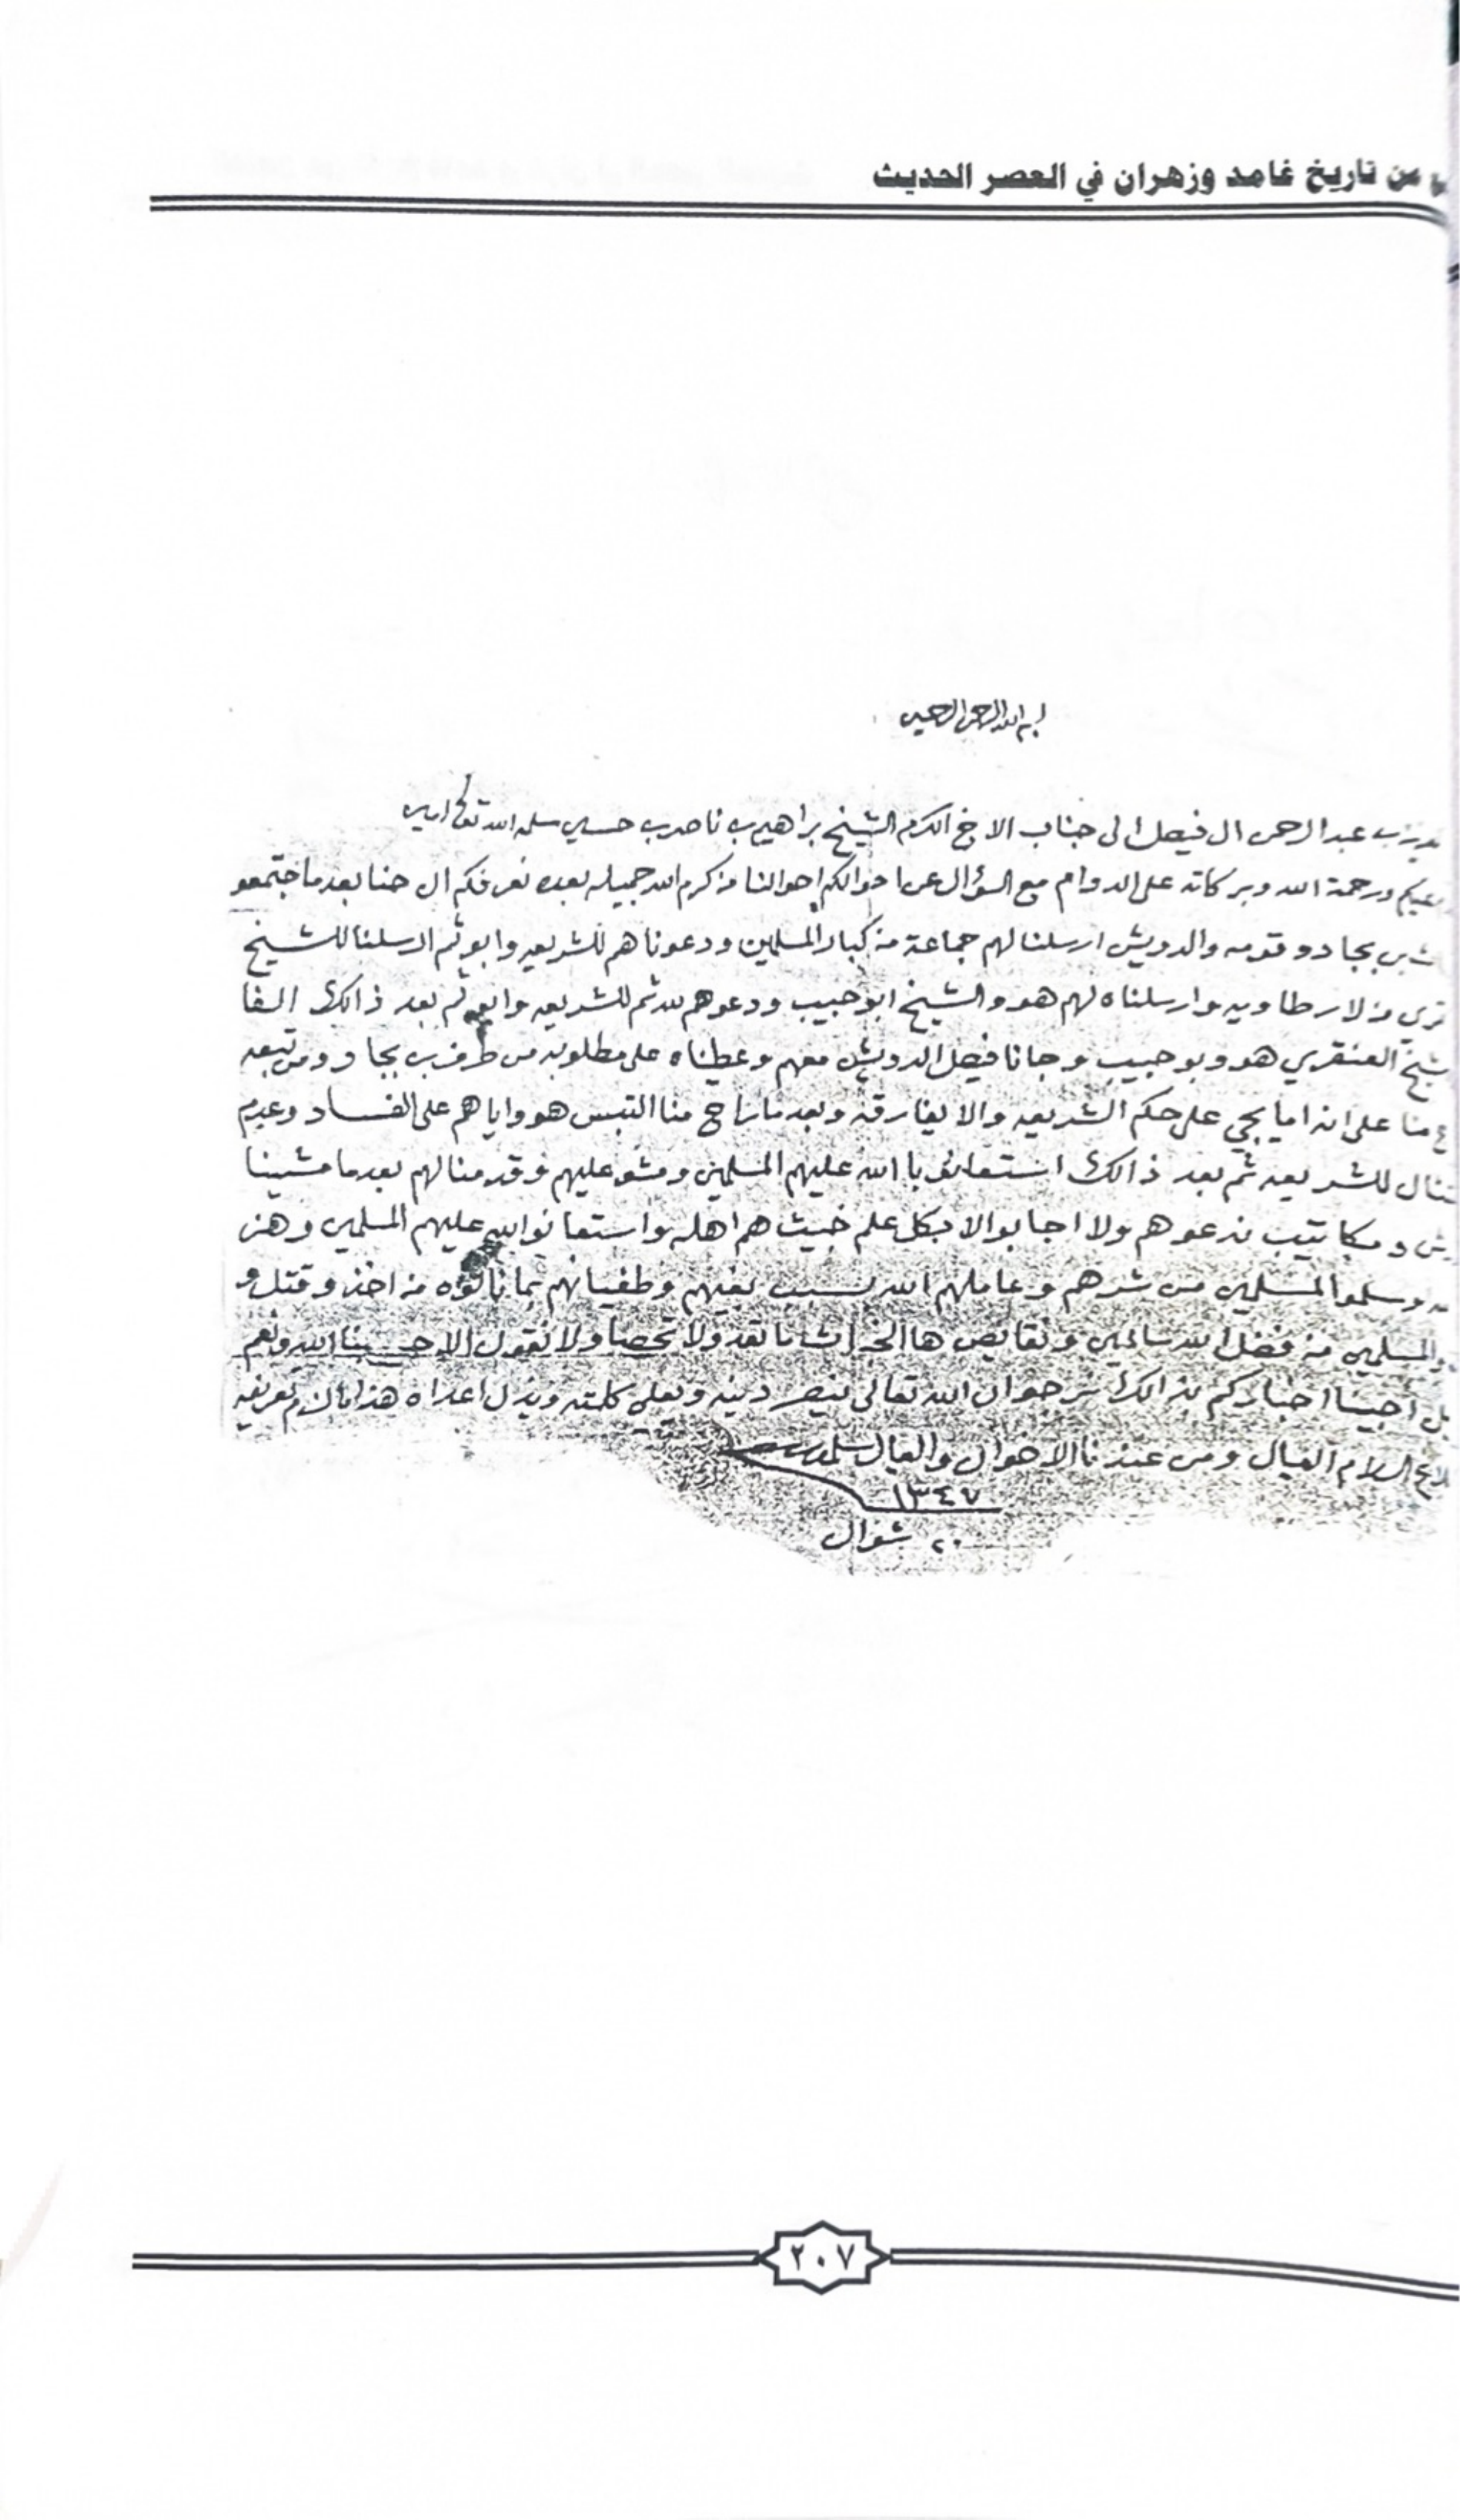 من تاريخ غامد وزهران في العصر الحديث
بسم الله الرحمن الرحيم
عبد الرحمن ال فيصل الى جناب الاخ المكرم الشيخ براهيم بن ناصر بن حسين سلمه الله تعالى امين
عليكم ورحمة الله وبركاته على الدوام مع السؤال عن احوالكم احوالنا من كرم الله جميله بعده نعرفكم ان حنا بعد ما اجتمعو
بن بجاد وقومه والدويش ارسلنا لهم جماعة من كبار المسلمين ودعوناهم للشريعه وابو ثم ارسلنا للشيخ
من لارطاويه وارسلناه لهم هو والشيخ ابو حبيب ودعوهم لله ثم للشريعه وابو ثم بعد ذالك الفا
شيخ العنقري هو وبو حبيب وجانا فيصل الدويش معهم وعطيناه على مطلوبه من طرف بن بجاد ومن تبعه
منا على انه اما يجي على حكم الشريعه والا يفارقه وبعد ما راح منا التبس هو واياهم على الفساد وعدم
للشريعه ثم بعد ذالك استعانو باالله عليهم المسلمين ومشو عليهم وقدمنا لهم بعد ما مشينا
ومكاتيب ندعوهم ولا اجابو الا بكل علم خبيث هم اهله واستعانو الله عليهم المسلمين
وسلمو المسلمين من شرهم وعاملهم الله بسبب بغيهم وطغيانهم بما نالوه من اخذ وقتل و
المسلمين من فضل الله سالمين ونقايص ها ما تعد ولا تحصا ولا نقول الا حسبنا الله ونعم
احبينا اخباركم بذالك نرجو ان الله تعالى ينصر دينه ويعلي كلمته ويذل اعداه هذا ما لزم تعريفه
السلام العيال ومن عندنا الاخوان والعيال يسلمون
١٣٤٧
٢٠ شوال
٢٠٧